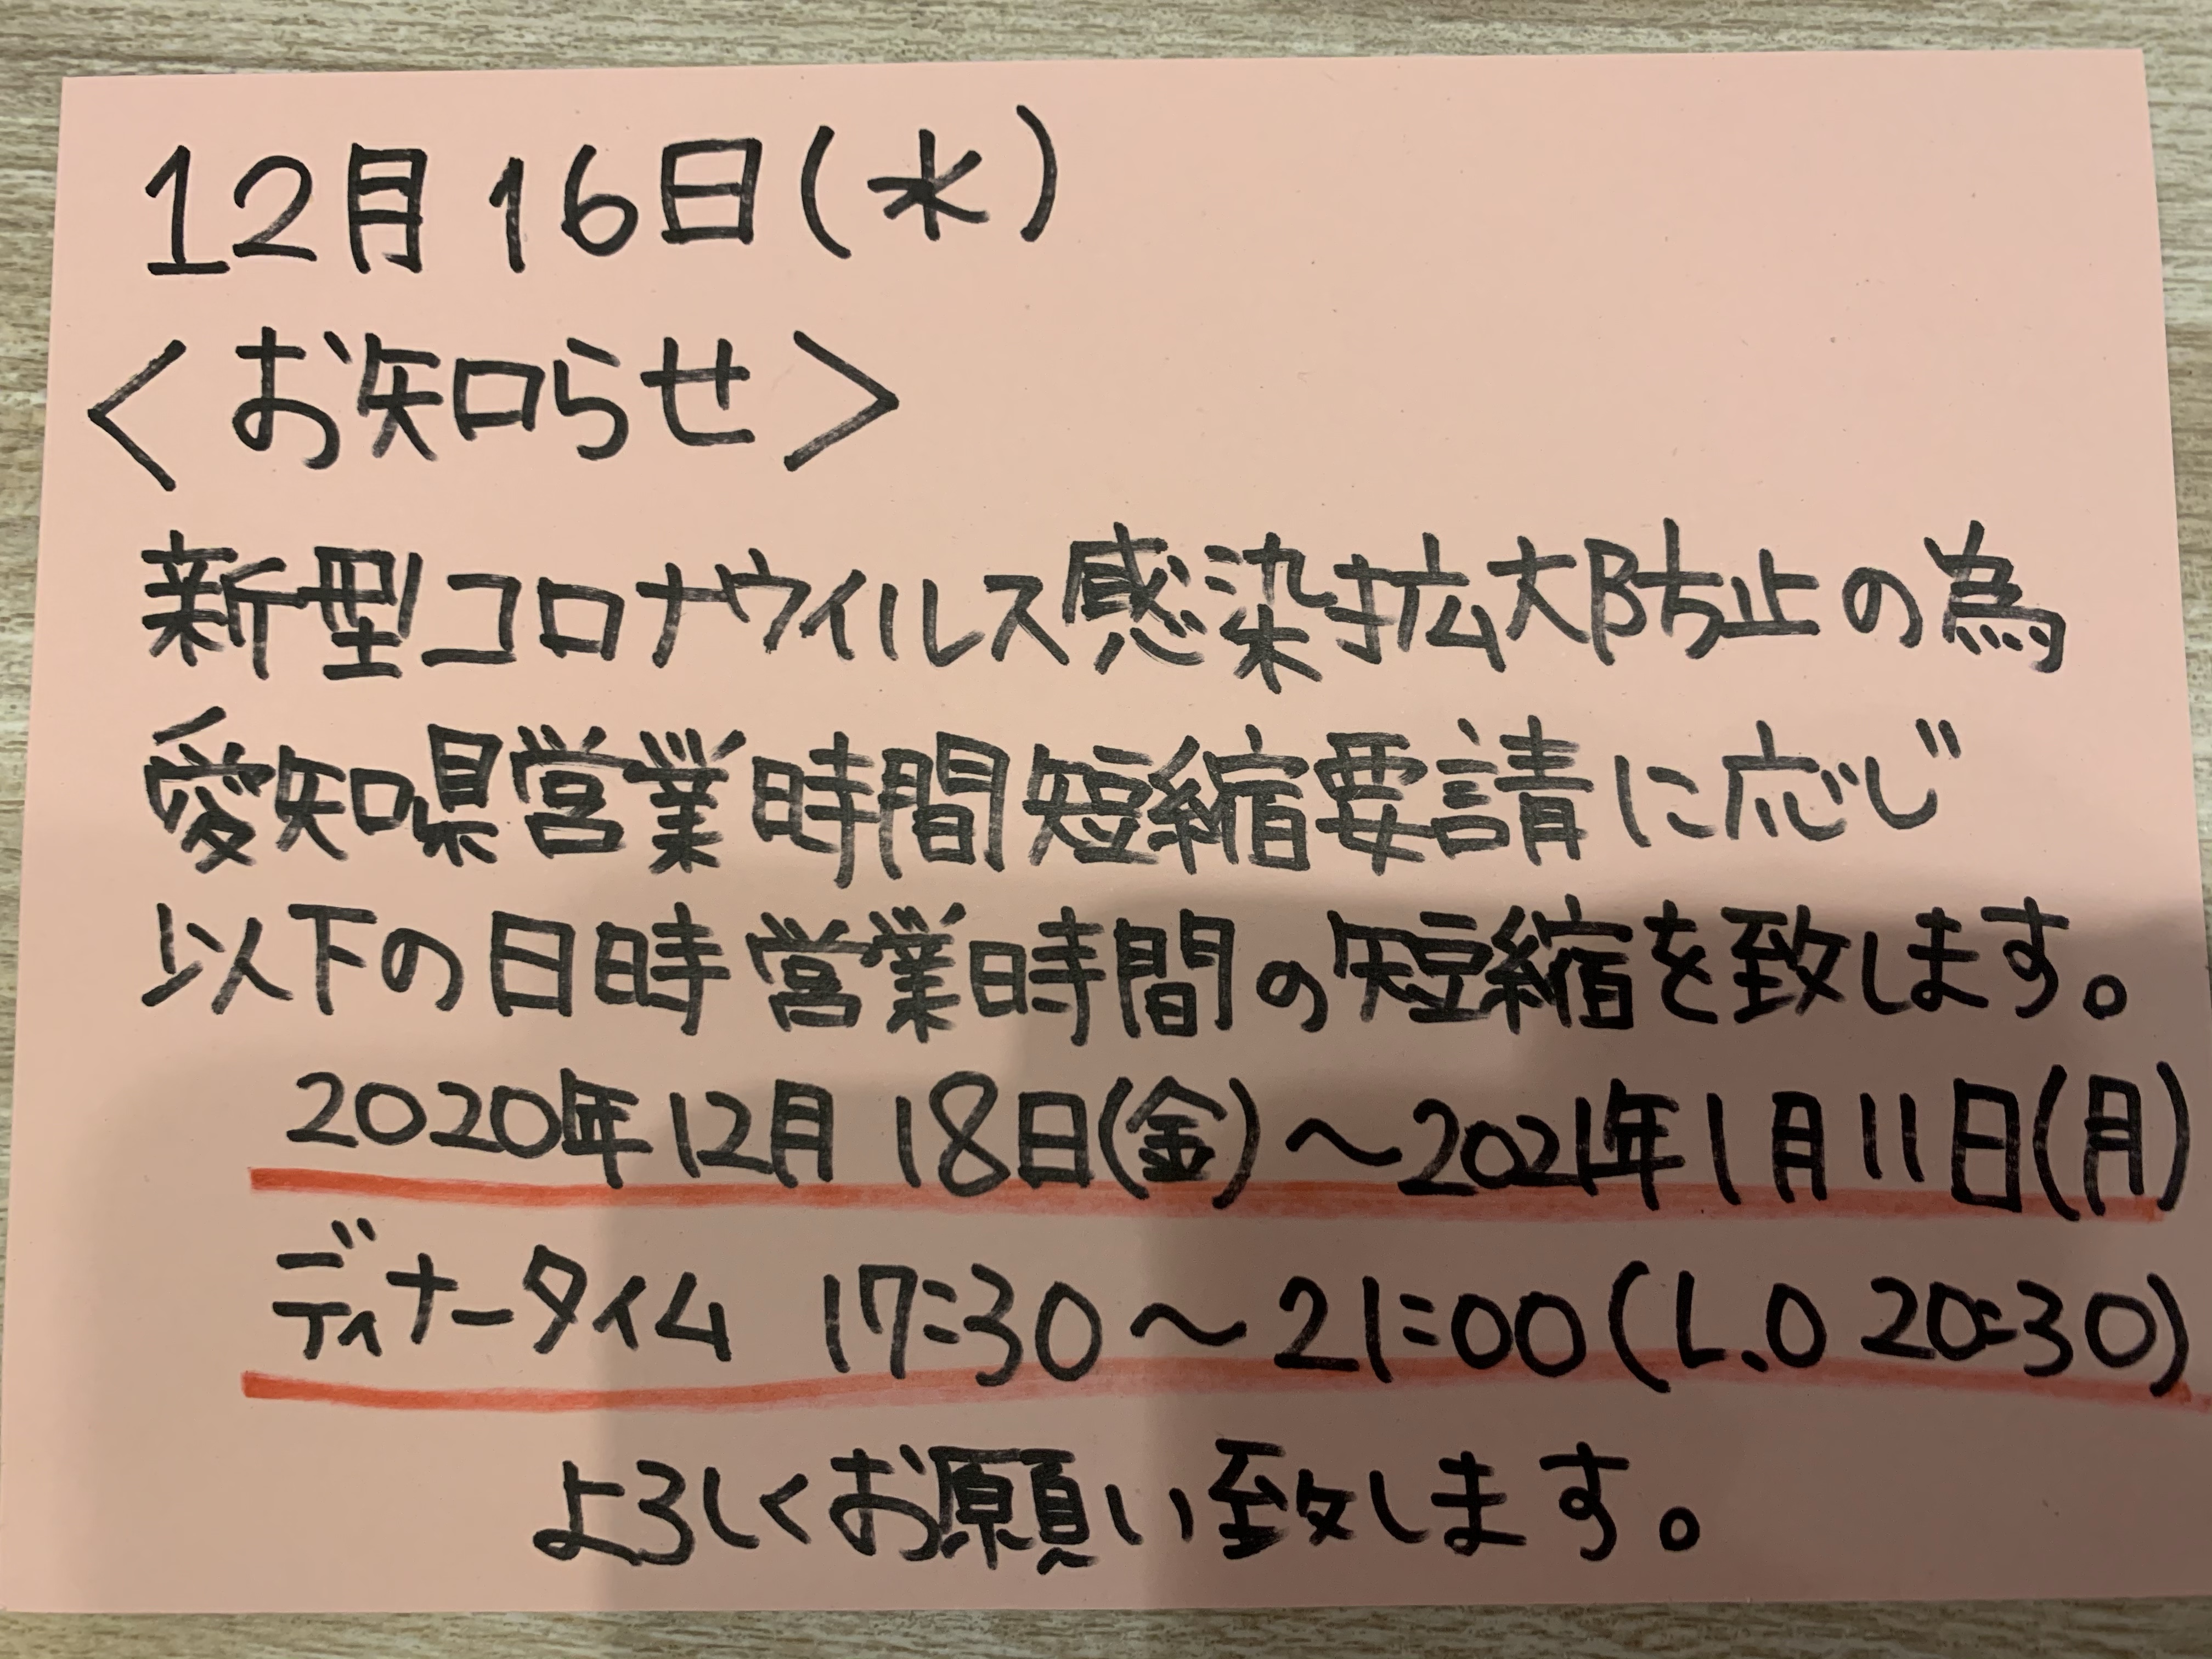 12月16日(水)
<お知らせ>
新型コロナウイルス感染拡大防止の為
愛知県営業時間短縮要請に応じ
以下の日時営業時間の短縮を致します。
2020年12月18日(金)～2021年1月11日(月)
ディナータイム 17:30～21:00(L.O 20:30)
よろしくお願い致します。